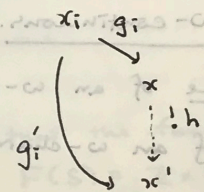 xᵢ gᵢ
x
!h
gᵢ'
x'